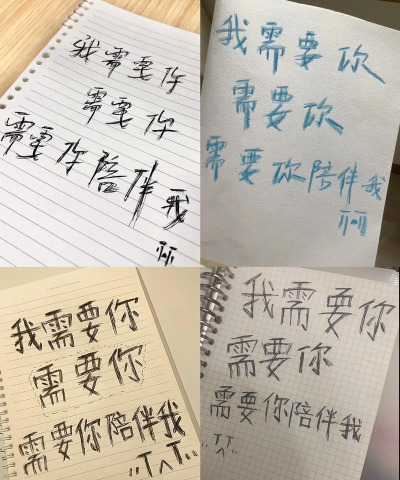 我需要你
需要你
需要你陪伴我
我需要你
需要你
需要你陪伴我
我需要你
需要你
需要你陪伴我
T^T
我需要你
需要你
需要你陪伴我
T^T